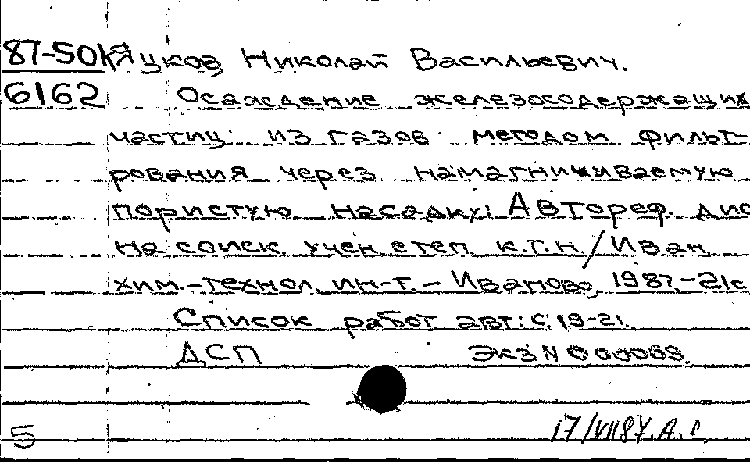 87-50К Яцков Николай Васильевич.
6162 Осаждение железосодержащих
частиц из газов методом фильт-
рования через намагничиваемую
пористую насадку: Автореф. дис
на соиск. учен. степ. к.т.н. / Иван.
хим.-технол. ин-т. - Иваново, 1987. - 21с
Список работ авт.: с. 19-21.
ДСП Экз N 000068
5 17/VII87. А.С.